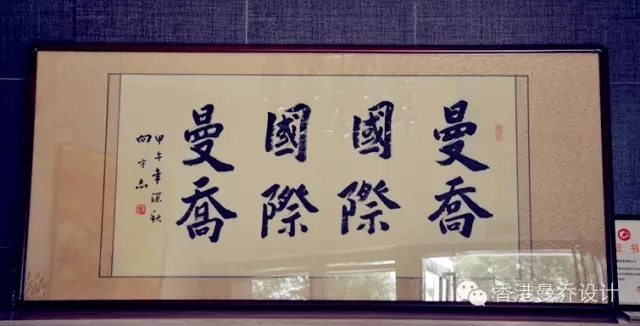 曼喬
國際
國際
曼喬
甲午年深秋
向守志
证书
香港曼乔设计